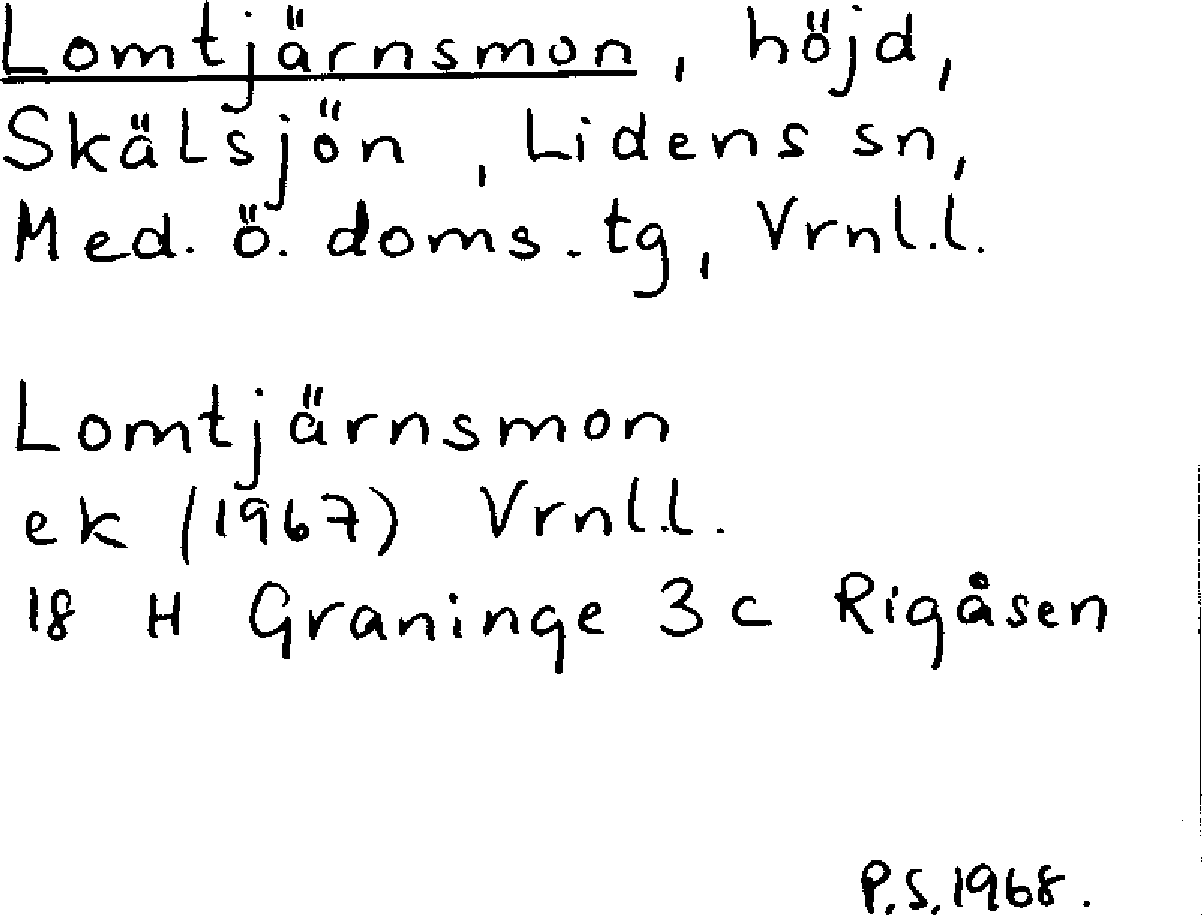 Lomtjärnsmon, höjd,
Skälsjön, Lidens sn,
Med. ö. doms. tg, Vrnl.l.
Lomtjärnsmon
ek (1967) Vrnl.l.
18 H Graninge 3c Rigåsen
P.S. 1968.